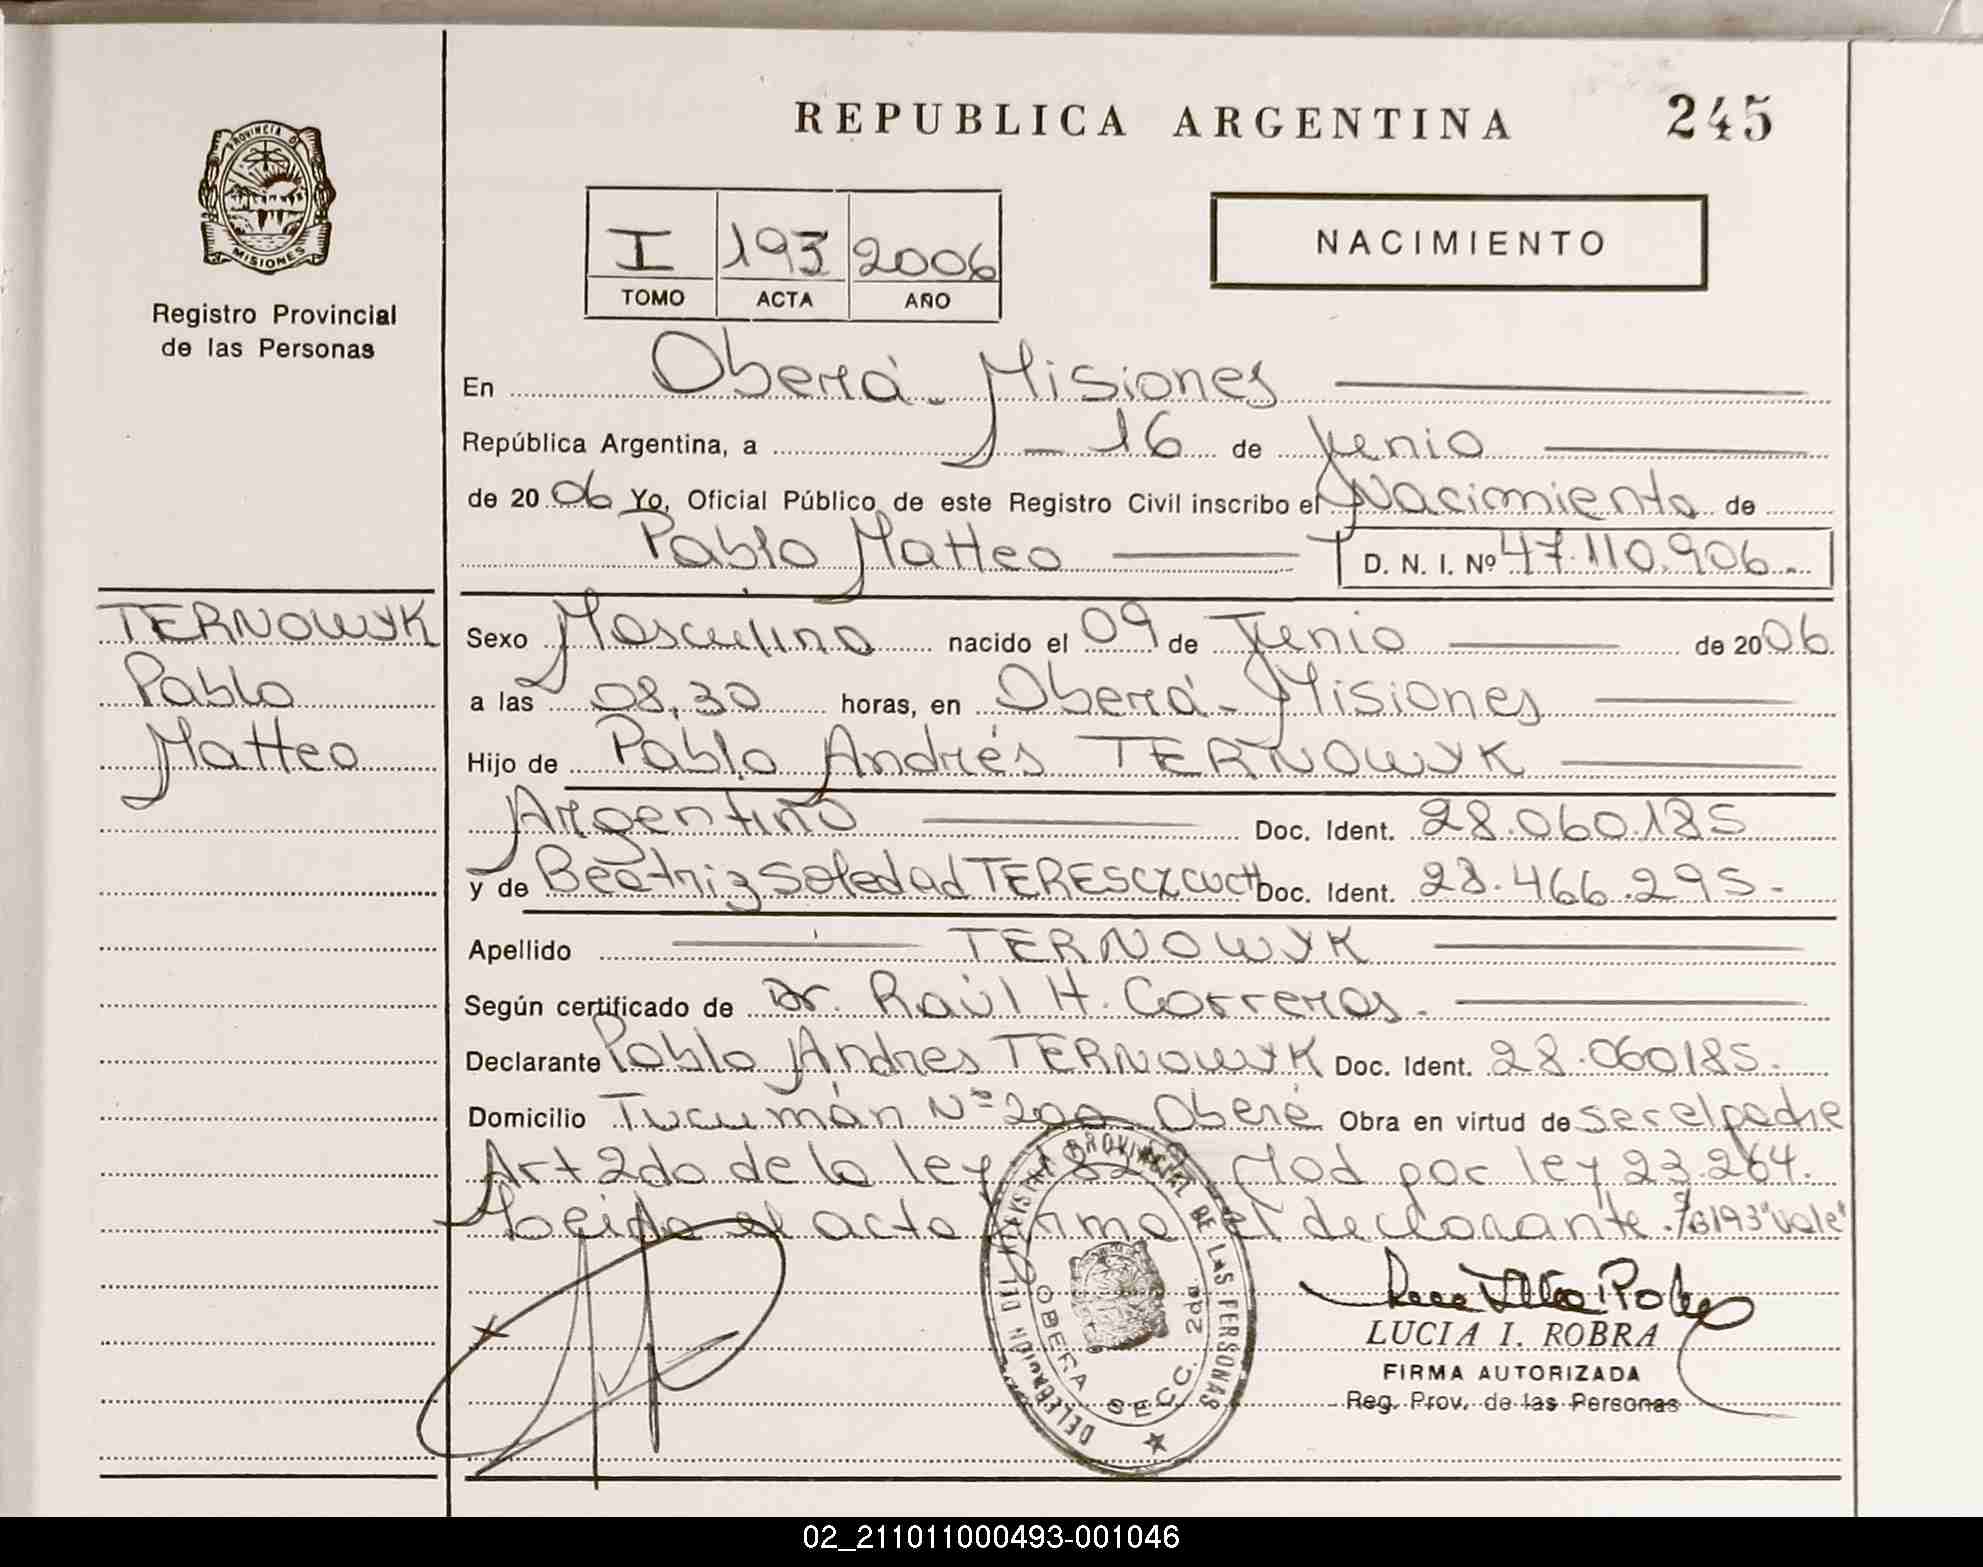 REPUBLICA ARGENTINA 245
PROVINCIA D MISIONES
Registro Provincial
de las Personas
I 193 2006
TOMO ACTA AÑO
NACIMIENTO
En Oberá - Misiones
República Argentina, a - 16 de Junio
de 20 06 Yo, Oficial Público de este Registro Civil inscribo el Nacimiento de
Pablo Matteo D. N. I. Nº 47.110.906.-
TERNOWYK
Pablo
Matteo
Sexo Masculino nacido el 09 de Junio de 2006.
a las 08,30 horas, en Oberá - Misiones
Hijo de Pablo Andrés TERNOWYK
Argentino Doc. Ident. 28.060.185
y de Beatriz Soledad TERESCZCUCH Doc. Ident. 28.466.295.-
Apellido TERNOWYK
Según certificado de Dr. Raúl H. Correras.
Declarante Pablo Andres TERNOWYK Doc. Ident. 28.060185.-
Domicilio Tucumán Nº 200 Oberá Obra en virtud de ser el padre
Art 2do de la ley Mod por ley 23.264.
Leida el acta firma el declarante. 193 "Vale"
DELEGACIÓN DEL REGISTRO PROVINCIAL DE LAS PERSONAS
OBERA SECC. 2da.
LUCIA I. ROBRA
FIRMA AUTORIZADA
Reg. Prov. de las Personas
02_211011000493-001046